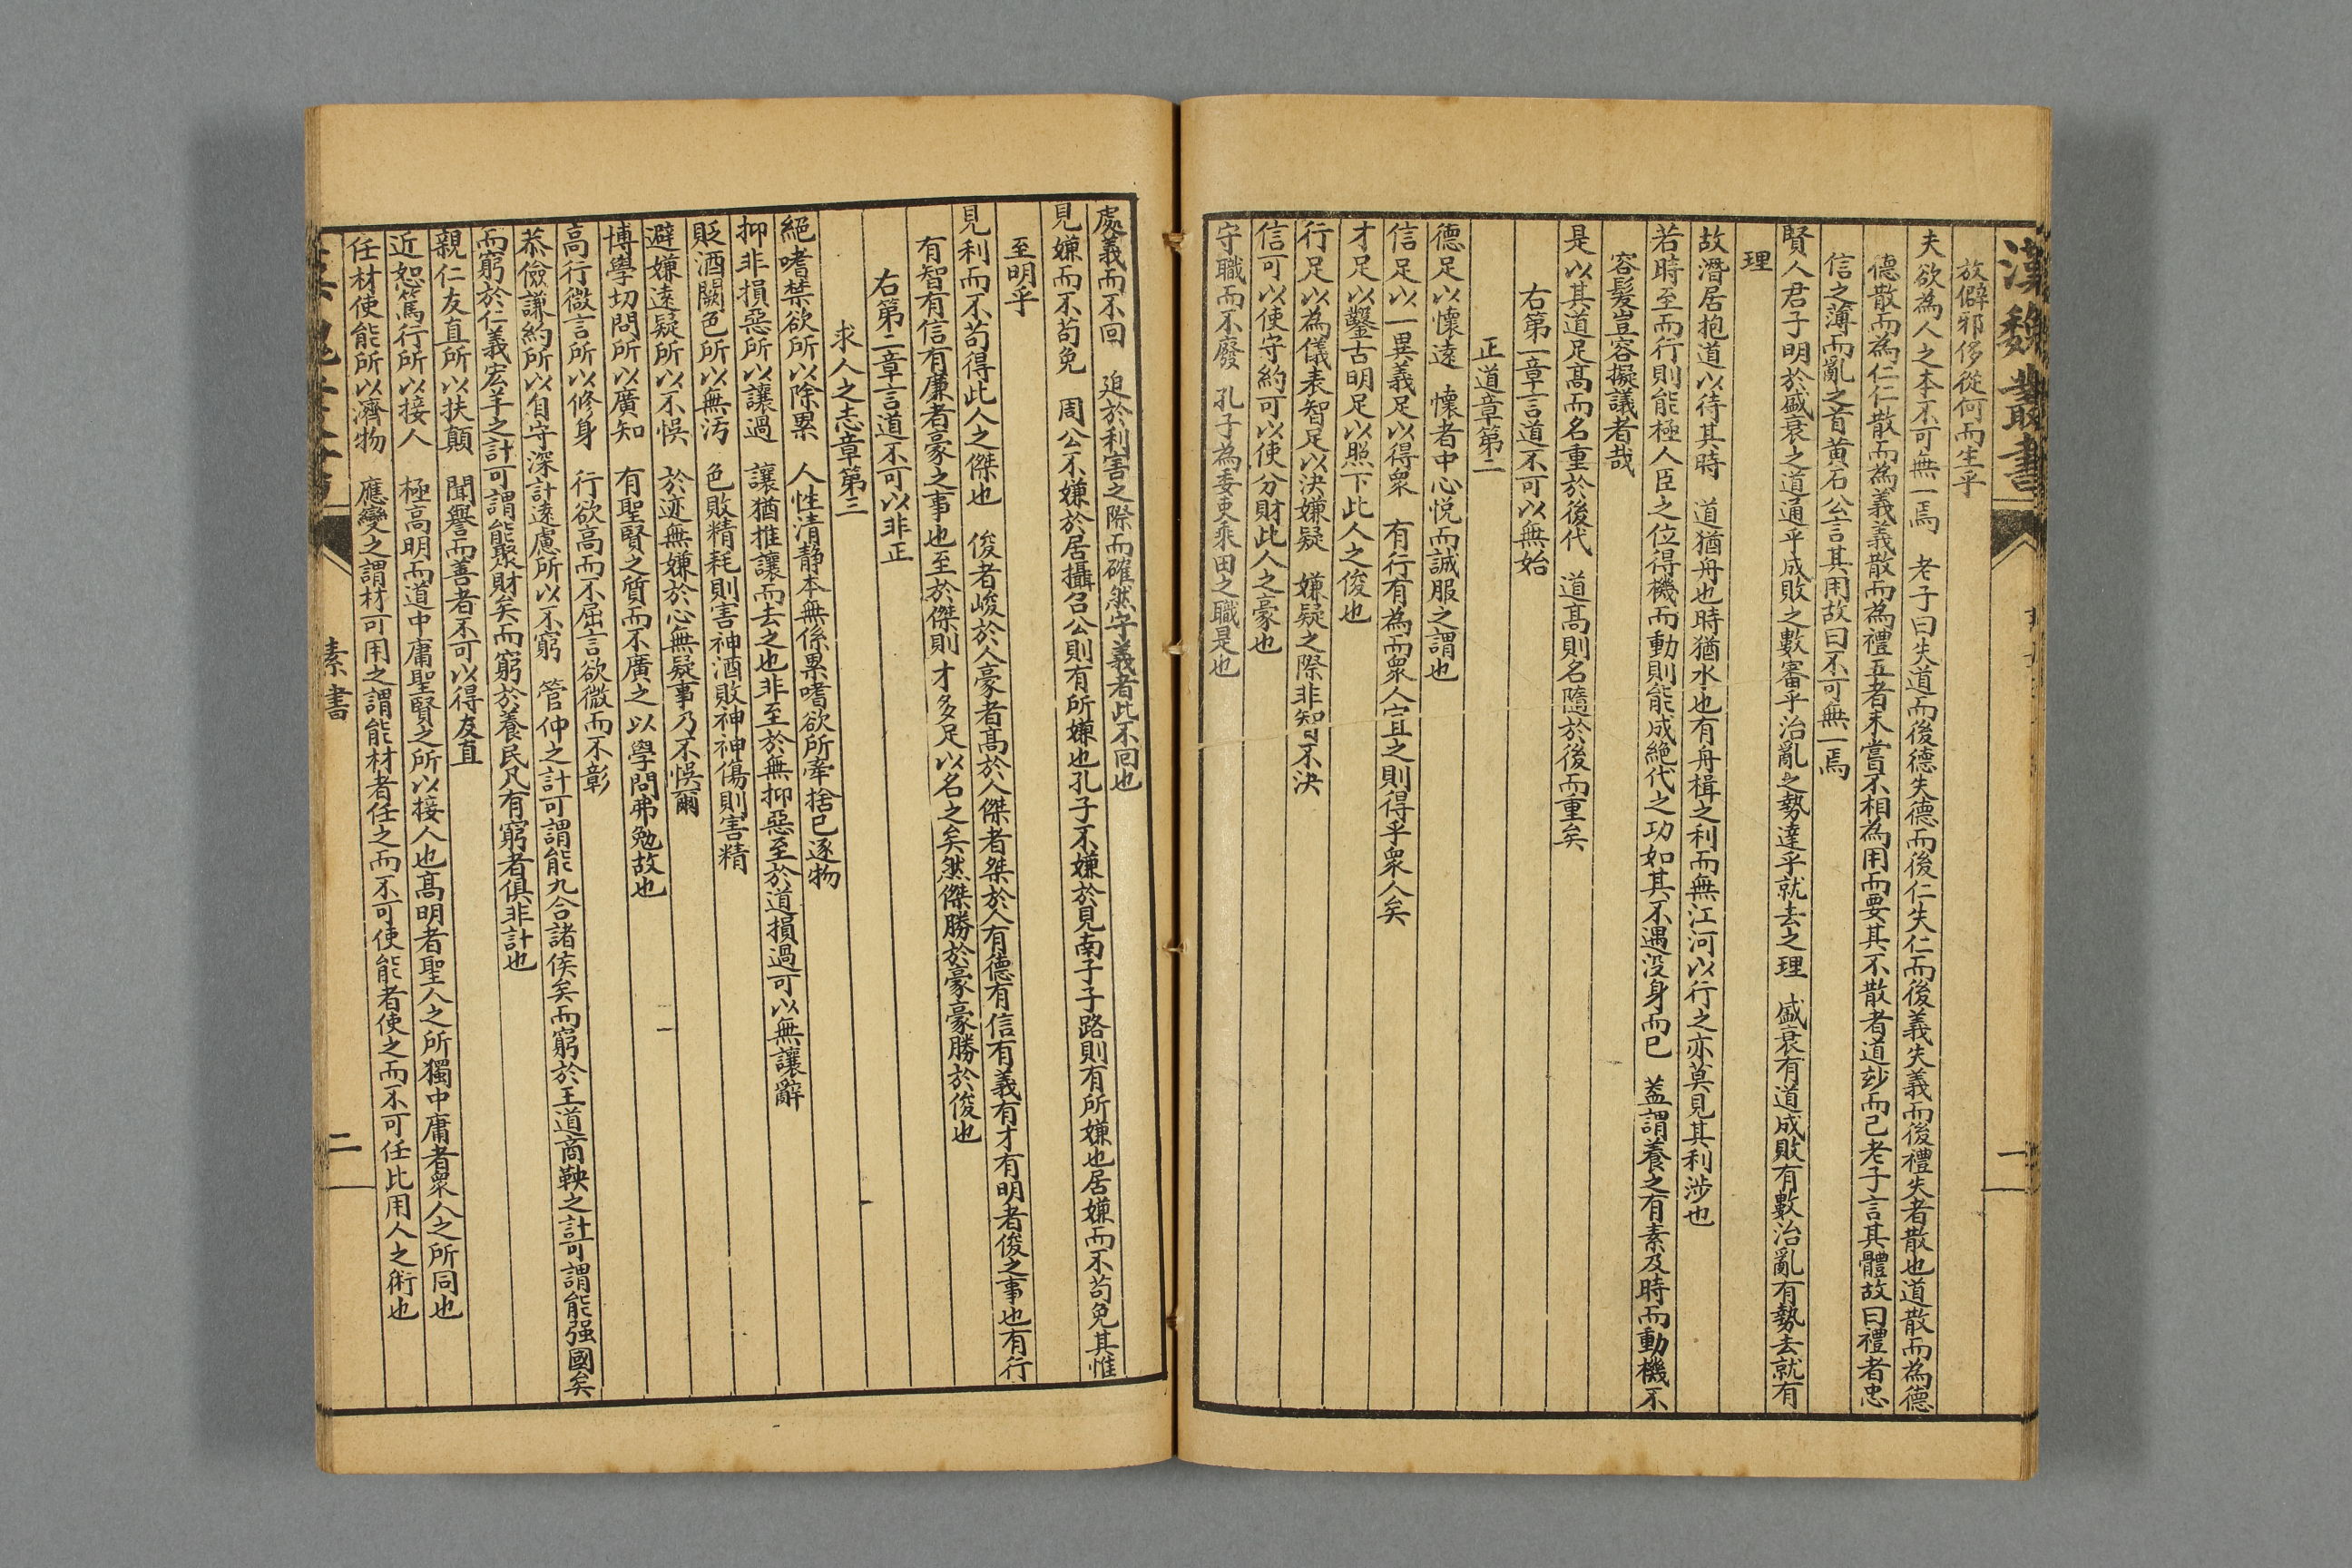 漢魏叢書
一
放僻邪侈從何而生乎
夫欲為人之本不可無一焉　老子曰失道而後德失德而後仁失仁而後義失義而後禮失者散也道散而為德
德散而為仁仁散而為義義散而為禮五者未嘗不相為用而要其不散者道妙而已老子言其體故曰禮者忠
信之薄而亂之首黃石公言其用故曰不可無一焉
賢人君子明於盛衰之道通乎成敗之數審乎治亂之勢達乎就去之理　盛衰有道成敗有數治亂有勢去就有
理
故潛居抱道以待其時　道猶舟也時猶水也有舟楫之利而無江河以行之亦莫見其利涉也
若時至而行則能極人臣之位得機而動則能成絕代之功如其不遇沒身而已　蓋謂養之有素及時而動機不
容髮豈容擬議者哉
是以其道足高而名重於後代　道高則名隨於後而重矣
右第一章言道不可以無始
正道章第二
德足以懷遠　懷者中心悅而誠服之謂也
信足以一異義足以得眾　有行有為而眾人宜之則得乎眾人矣
才足以鑿古明足以照下此人之俊也
行足以為儀表智足以決嫌疑　嫌疑之際非智不決
信可以使守約可以使分財此人之豪也
守職而不廢　孔子為委吏乘田之職是也
處義而不回　迫於利害之際而確然守義者此不回也
見嫌而不茍免　周公不嫌於居攝召公則有所嫌也孔子不嫌於見南子子路則有所嫌也居嫌而不茍免其惟
至明乎
見利而不茍得此人之傑也　俊者峻於人豪者高於人傑者桀於人有德有信有義有才有明者俊之事也有行
有智有信有廉者豪之事也至於傑則才多足以名之矣然傑勝於豪豪勝於俊也
右第二章言道不可以非正
求人之志章第三
絕嗜禁欲所以除累　人性清靜本無係累嗜欲所牽捨己逐物
抑非損惡所以讓過　讓猶推讓而去之也非至於無抑惡至於道損過可以無讓辭
貶酒闕色所以無汚　色敗精耗則害神酒敗神神傷則害精
避嫌遠疑所以不悞　於迹無嫌於心無疑事乃不悞爾
博學切問所以廣知　有聖賢之質而不廣之以學問弗勉故也
高行微言所以修身　行欲高而不屈言欲微而不彰
恭儉謙約所以自守深計遠慮所以不窮　管仲之計可謂能九合諸侯矣而窮於王道商鞅之計可謂能强國矣
而窮於仁義宏羊之計可謂能聚財矣而窮於養民凡有窮者俱非計也
親仁友直所以扶顛　聞譽而善者不可以得友直
近恕篤行所以接人　極高明而道中庸聖賢之所以接人也高明者聖人之所獨中庸者眾人之所同也
任材使能所以濟物　應變之謂材可用之謂能材者任之而不可使能者使之而不可任此用人之術也
素書
二